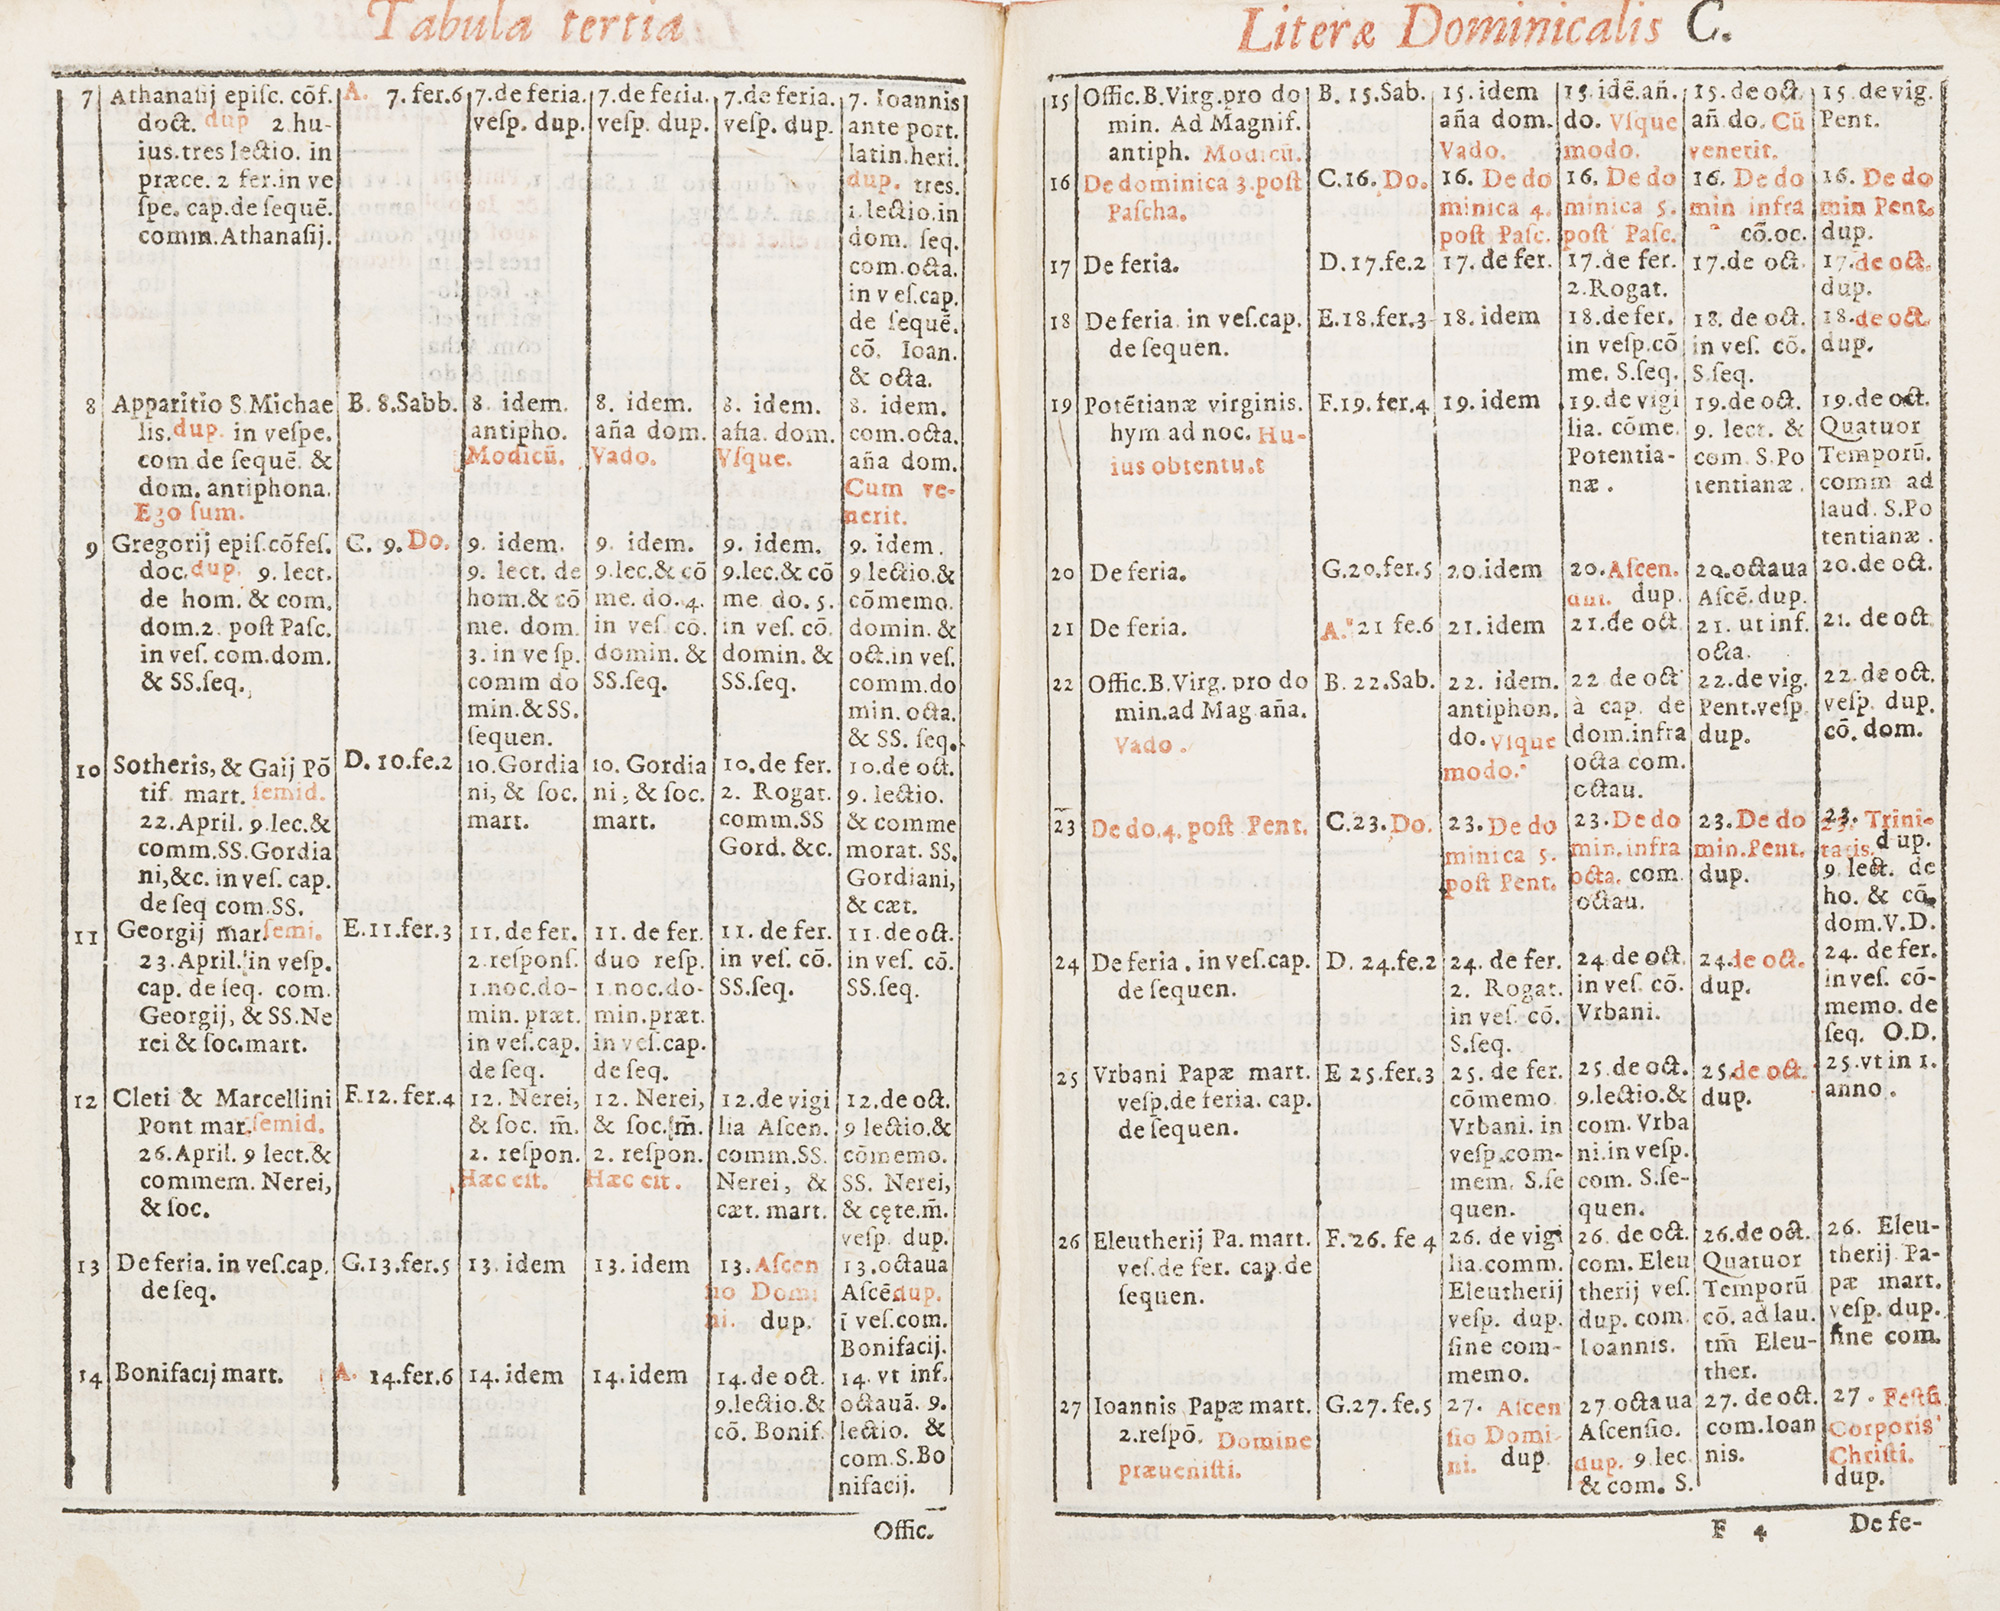 Tabula tertia
7 Athanasij episc. cõf.
doct. dup 2. hu-
ius. tres lectio. in
præce. 2 fer. in ve
spe. cap. de sequẽ.
comm. Athanasij.
8 Apparitio S. Michae
lis. dup. in vespe.
com de sequẽ. &
dom. antiphona.
Ego sum.
9 Gregorij epis. cõfes.
doc. dup. 9. lect.
de hom. & com.
dom. 2. post Pasc.
in ves. com. dom.
& SS. seq.
10 Sotheris, & Gaij Põ
tif. mart. semid.
22. April. 9. lec. &
comm. SS. Gordia
ni, &c. in ves. cap.
de seq com. SS.
11 Georgij mar. semi.
23. April. in vesp.
cap. de seq. com.
Georgij, & SS. Ne
rei & soc. mart.
12 Cleti & Marcellini
Pont mar. semid.
26. April. 9 lect. &
commem. Nerei,
& soc.
13 De feria. in ves. cap.
de seq.
14 Bonifacij mart.
A. 7. fer. 6
B. 8. Sabb.
C. 9. Do.
D. 10. fe. 2
E. 11. fer. 3
F. 12. fer. 4
G. 13. fer. 5
A. 14. fer. 6
7. de feria.
vesp. dup.
8. idem.
antipho.
Modicũ.
9. idem.
9. lect. de
hom. & cõ
me. dom.
3. in vesp.
comm do
min. & SS.
sequen.
10. Gordia
ni, & soc.
mart.
11. de fer.
2. respons.
1. noc. do-
min. præt.
in ves. cap.
de seq.
12. Nerei,
& soc. m̃.
2. respon.
Hæc est.
13. idem
14. idem
7. de feria.
vesp. dup.
8. idem.
aña dom.
Vado.
9. idem.
9. lec. & cõ
me. do. 4.
in ves cõ.
domin. &
SS. seq.
10. Gordia
ni, & soc.
mart.
11. de fer.
duo resp.
1. noc. do-
min. præt.
in ves. cap.
de seq.
12. Nerei,
& soc. m̃.
2. respon.
Hæc est.
13. idem
14. idem
7. de feria.
vesp. dup.
8. idem.
aña. dom.
Vsque.
9. idem.
9. lec. & cõ
me do. 5.
in ves. cõ.
domin. &
SS. seq.
10. de fer.
2. Rogat.
comm. SS
Gord. &c.
11. de fer.
in ves. cõ.
SS. seq.
12. de vigi
lia Ascen.
comm. SS.
Nerei, &
cæt. mart.
13. Ascen
sio Domi
ni. dup.
14. de oct.
9. lectio. &
cõ. Bonif.
7. Ioannis
ante port.
latin. heri.
dup. tres.
1. lectio. in
dom. seq.
com. octa.
in ves. cap.
de sequẽ.
cõ. Ioan.
& octa.
8. idem.
com. octa.
aña dom.
Cum ve-
nerit.
9. idem.
9 lectio. &
cõmemo.
domin. &
oct. in ves.
comm. do
min. octa.
& SS. seq.
10. de oct.
9. lectio.
& comme
morat. SS.
Gordiani,
& cæt.
11. de oct.
in ves. cõ.
SS. seq.
12. de oct.
9 lectio. &
cõmemo.
SS. Nerei,
& cęte. m̃.
vesp. dup.
13. octaua
Ascẽ dup.
ĩ ves. com.
Bonifacij.
14. vt inf.
octauã. 9.
lectio. &
com. S. Bo
nifacij.
Offic.
Literæ Dominicalis C.
15 Offic. B. Virg. pro do
min. Ad Magnif.
antiph. Modicũ.
16 De dominica 3. post
Pascha.
17 De feria.
18 De feria. in ves. cap.
de sequen.
19 Potẽtianæ virginis.
hym. ad noc. Hu-
ius obtentu. t
20 De feria.
21 De feria.
22 Offic. B. Virg. pro do
min. ad Mag. aña.
Vado.
23 De do. 4. post Pent.
24 De feria. in ves. cap.
de sequen.
25 Vrbani Papæ mart.
vesp. de feria. cap.
de sequen.
26 Eleutherij Pa. mart.
ves. de fer. cap. de
sequen.
27 Ioannis Papæ mart.
2. respõ. Domine
præuenisti.
B. 15. Sab.
C. 16. Do.
D. 17. fe. 2
E. 18. fer. 3
F. 19. fer. 4
G. 20. fer. 5
A. 21 fe. 6
B. 22. Sab.
C. 23. Do.
D. 24. fe. 2
E 25. fer. 3
F. 26. fe 4
G. 27. fe. 5
15. idem
aña dom.
Vado.
16. De do
minica 4.
post Pasc.
17. de fer.
18. idem
19. idem
20. idem
21. idem
22. idem.
antiphon.
do. Vsque
modo.
23. De do
minica 5.
post Pent.
24. de fer.
2. Rogat.
in ves. cõ.
S. seq.
25. de fer.
cõmemo
Vrbani. in
vesp. com-
mem. S. se
quen.
26. de vigi
lia. comm.
Eleutherij
vesp. dup.
sine com-
memo.
27. Ascen
sio Domi-
ni. dup
15. idẽ. añ.
do. Vsque
modo.
16. De do
minica 5.
post Pasc.
17. de fer.
2. Rogat.
18. de fer.
in vesp. cõ
me. S. seq.
19. de vigi
lia. cõme.
Potentia-
næ.
20. Ascen.
dni. dup.
21. de oct.
22 de oct
à cap. de
dom. infra
octa com.
octau.
23. De do
min. infra
octa. com.
octau.
24 de oct.
in ves. cõ.
Vrbani.
25. de oct.
9. lectio. &
com. Vrba
ni. in vesp.
com. S. se-
quen.
26. de oct.
com. Eleu
therij ves.
dup. com.
Ioannis.
27 octaua
Ascensio.
dup. 9. lec.
& com. S.
15. de oct.
añ. do. Cũ
venerit.
16. De do
min infra
cõ. oc.
17. de oct.
18. de oct.
in ves. cõ.
S. seq.
19. de oct.
9. lect. &
com. S. Po
tentianæ.
20. octaua
Ascẽ. dup.
21. ut inf.
octa.
22. de vig.
Pent. vesp.
dup.
23. De do
min. Pent.
dup.
24. de oct.
dup.
25. de oct.
dup.
26. de oct.
Quatuor
Temporũ
cõ. ad lau.
tm̃ Eleu-
ther.
27. de oct.
com. Ioan
nis.
15. de vig.
Pent.
16. De do
min Pent.
dup.
17. de oct.
dup.
18. de oct.
dup.
19. de oct.
Quatuor
Temporũ.
comm ad
laud. S. Po
tentianæ.
20. de oct.
21. de oct.
22. de oct.
vesp. dup.
cõ. dom.
23. Trini-
tatis. dup.
9. lect. de
ho. & cõ.
dom. V. D.
24. de fer.
in ves. cõ-
memo. de
seq. O. D.
25. vt in 1.
anno.
26. Eleu-
therij Pa-
pæ mart.
vesp. dup.
sine com.
27. Festũ
Corporis
Christi.
dup.
F 4
De fe-